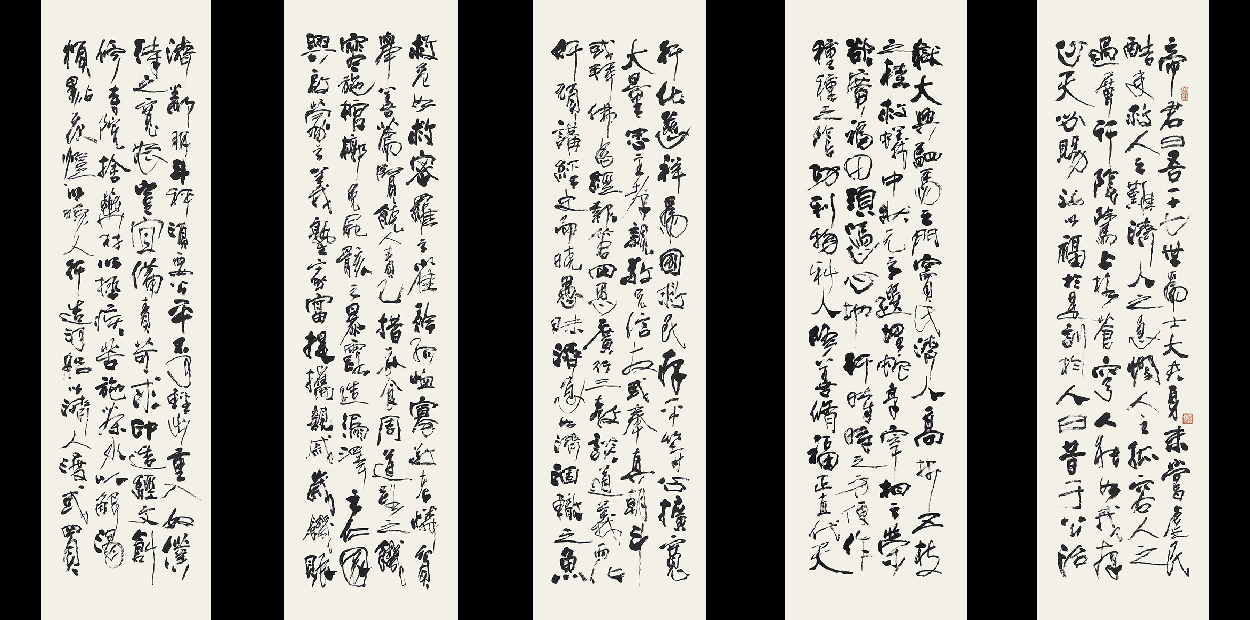 帝君曰吾一十七世為士大夫身未嘗虐民
酷吏救人之難濟人之急憫人之孤容人之
過廣行陰騭上格蒼穹人能如我存
心天必賜汝以福於是訓於人曰昔于公治
獄大興駟馬之門竇氏濟人高折五枝
之桂救蟻中狀元之選埋蛇享宰相之榮
欲廣福田須憑心地行時時之方便作
種種之陰功利物利人修善修福正直代天
行化慈祥為國救民存平等心擴寬
大量忠主孝親敬兄信友或奉真朝斗
或拜佛念經報答四恩廣行三教談道義而化
奸頑講經史而曉愚昧濟急如濟涸轍之魚
救危如救密羅之雀矜孤恤寡敬老憐貧
舉善薦賢饒人責己措衣食周道路之饑
寒施棺槨免屍骸之暴露造漏澤之仁園
興啟蒙之義塾家富提攜親戚歲饑賑
濟鄰朋斗秤須要公平不可輕出重入奴僕
待之寬恕豈宜備責苛求印造經文創
修寺院捨藥材以拯疾苦施茶水以解渴
煩點夜燈以照人行造河船以濟人渡或買